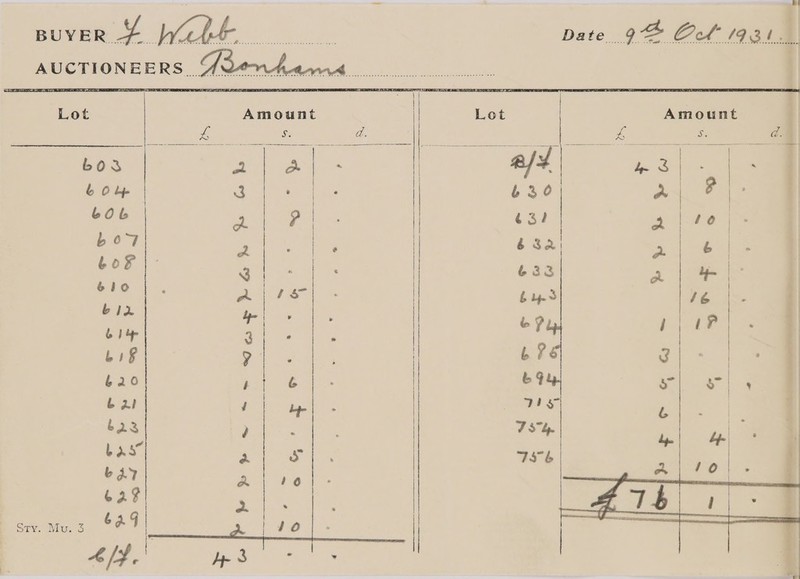 BUYER F. Webb. Date 9th Oct 1931.
AUCTIONEERS Bonhams
Lot Amount Lot Amount
£ s. d. £ s. d.
603 2 2 -
604 3 - -
606 2 8 -
607 2 - -
608 3 - -
610 2 15 -
612 4 - -
614 3 - -
618 8 - -
620 1 6 -
621 1 4 -
623 1 - -
625 2 5 -
627 2 10 -
628 2 - -
629 2 10 -
Sty. Mu. 3
C/F. 43 - -
B/F. 43 - -
630 2 8 -
631 2 10 -
632 2 6 -
633 2 4 -
643 16 -
684 1 18 -
686 3 - -
694 5 5 -
715 6 - -
754 4 4 -
756 2 10 -
£76 1 -